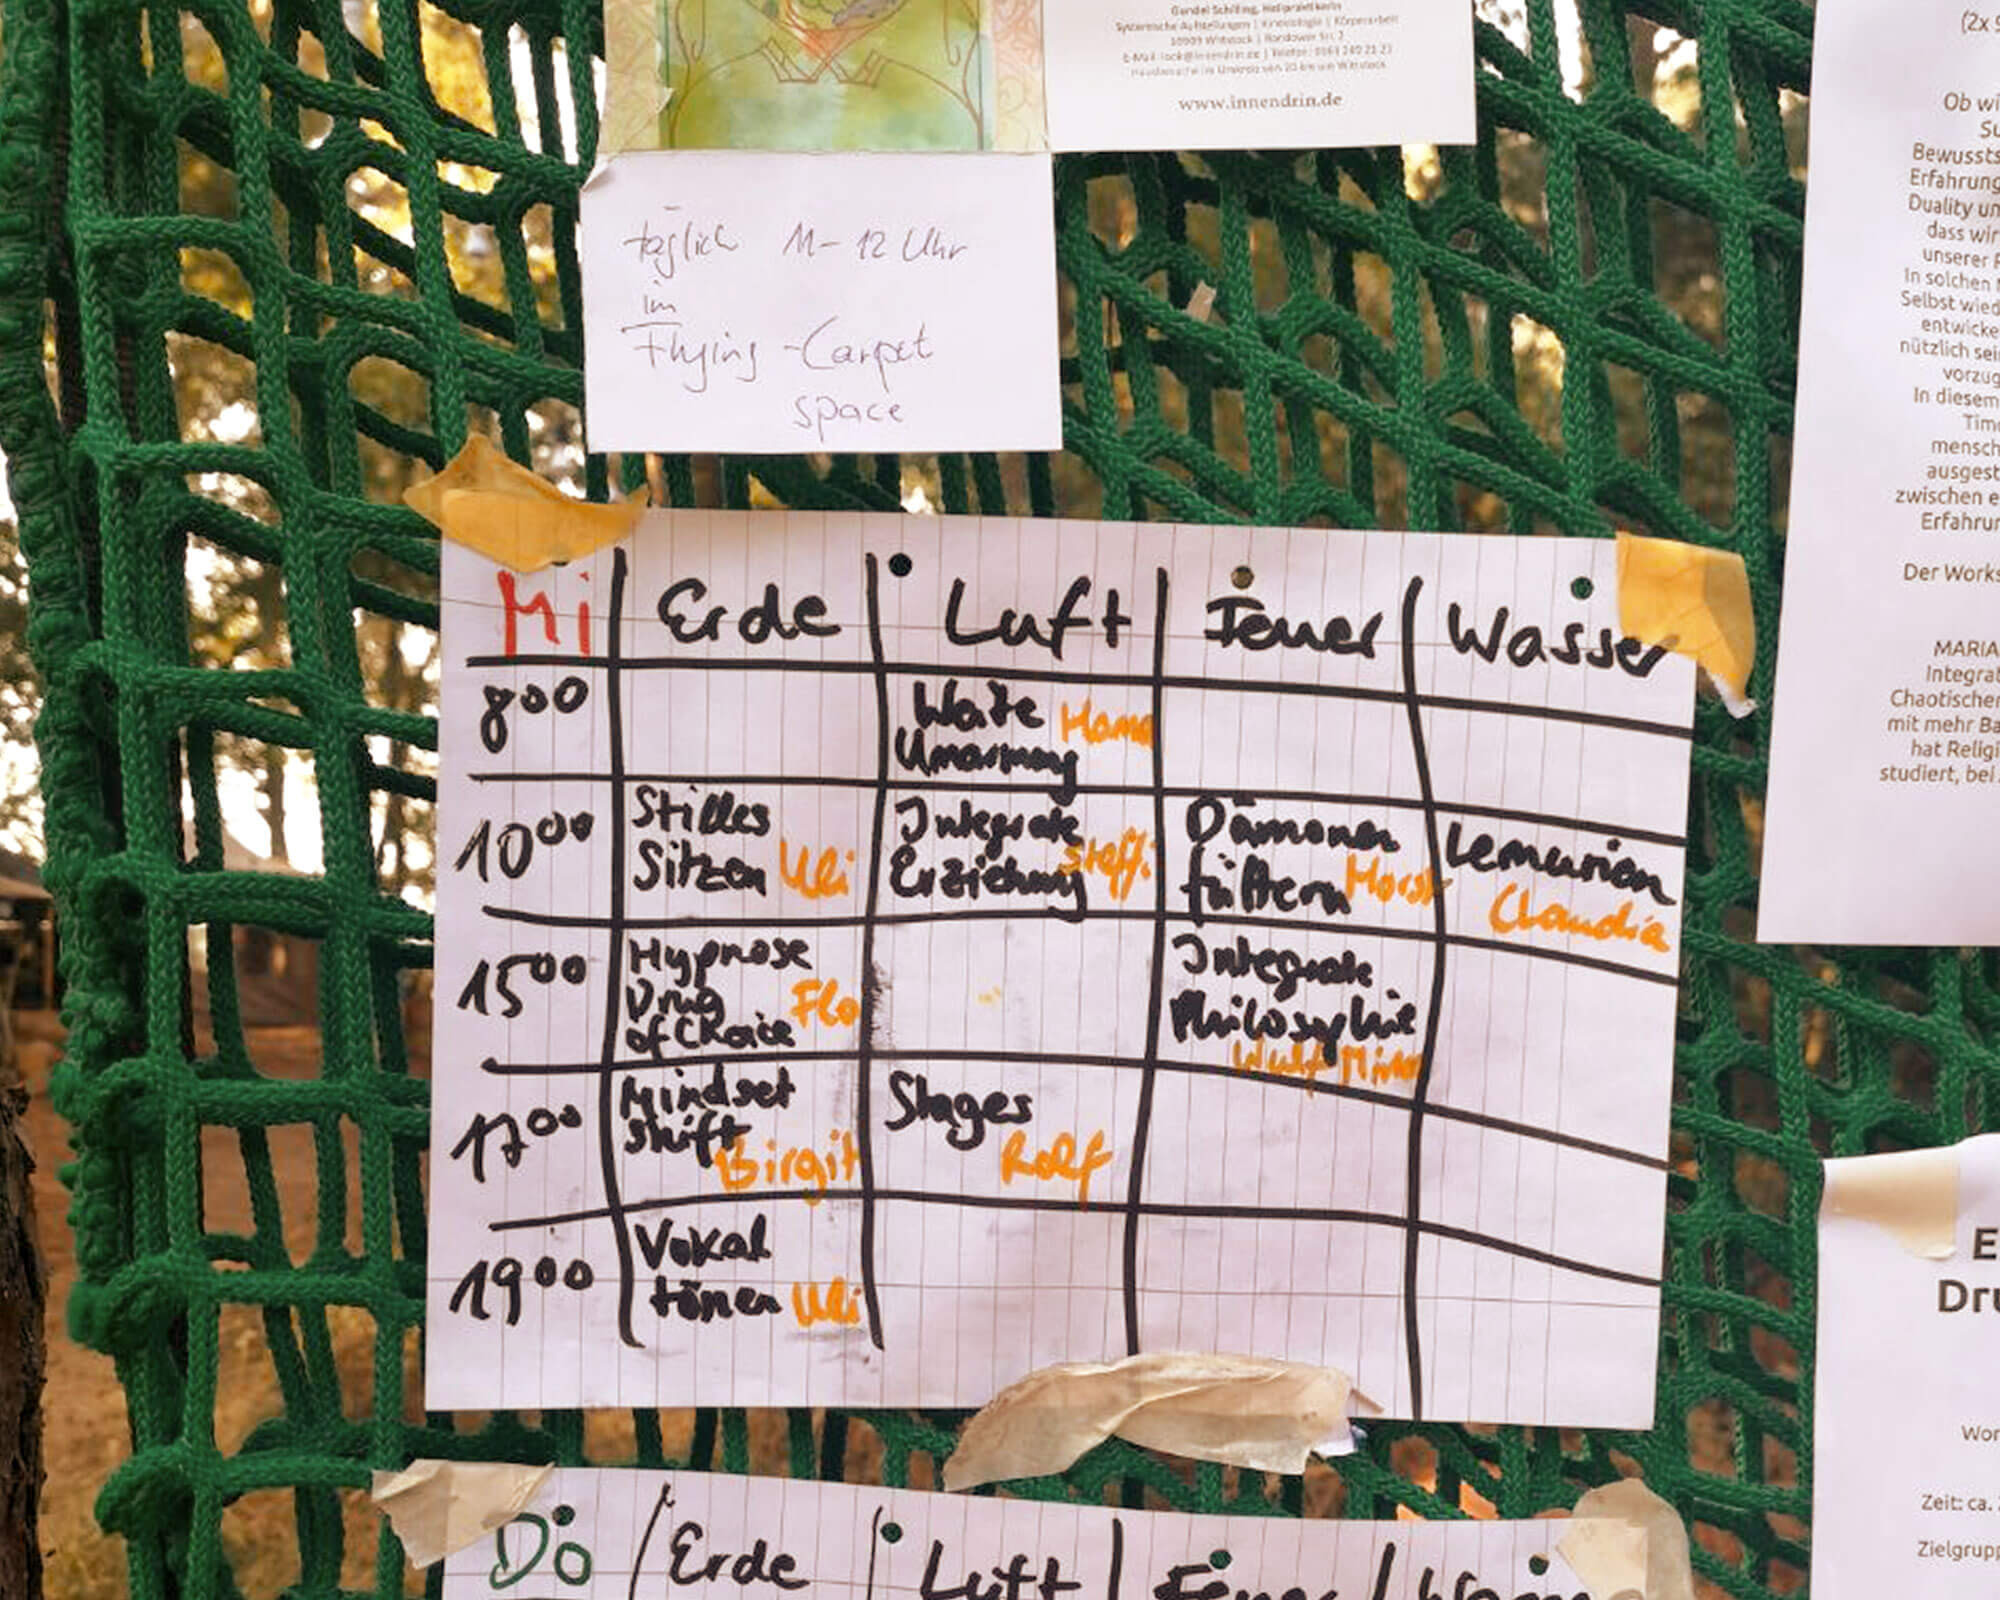 Gundel Schilling, Heilpraktikerin
Systemische Aufstellungen | Kinesiologie | Körperarbeit
16909 Wittstock |
www.innendrin.de
täglich 11-12 Uhr
im
Flying-Carpet
space
Mi Erde Luft Feuer Wasser
8 00
Umarmung
10 00 Stilles Sitzen Uli
Integrale Erziehung Steffi
Dämonen füttern
Lemurien Claudia
15 00 Hypnose Drug of Choice Flo
Integrale Philosophie
17 00 Mindset shift Birgit
Stages Rolf
19 00 Vokal tönen Uli
Do Erde Luft Feuer Wasser
(2x
Ob wi
Su
Bewussts
Erfahrung
Duality un
dass wir
unserer
In solchen
Selbst wied
entwicke
nützlich sei
vorzug
In diesem
Time
mensch
ausgest
zwischen e
Erfahrun
Der Works
MARIA
Integrat
Chaotischen
mit mehr Ba
hat Religi
studiert, bei
E
Dru
Wor
Zeit: ca.
Zielgrupp